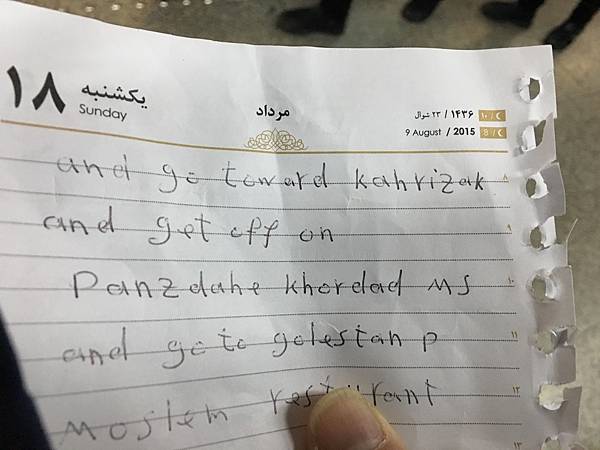 ۱۸
یکشنبه
Sunday
مرداد
۱۴۳۶ / ۲۳ شوال
۱۰ /
9 August / 2015
8 /
and go toward kahrizak
۸
and get off on
۹
Panzdahe khordad MS
۱۰
and go to golestan p
۱۱
moslem resturant
۱۲
۱۳